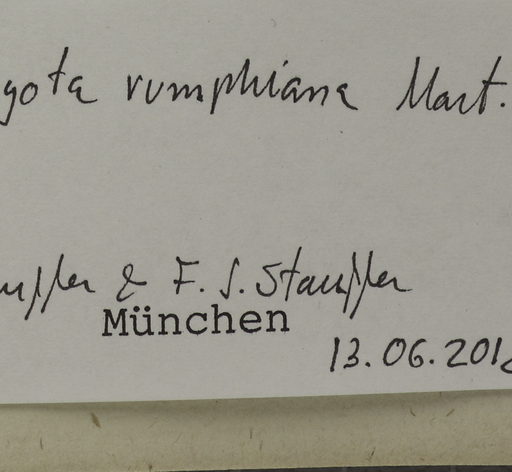 yota rumphiana Mart.
uffer & F. S. Stauffer
München
13.06.201